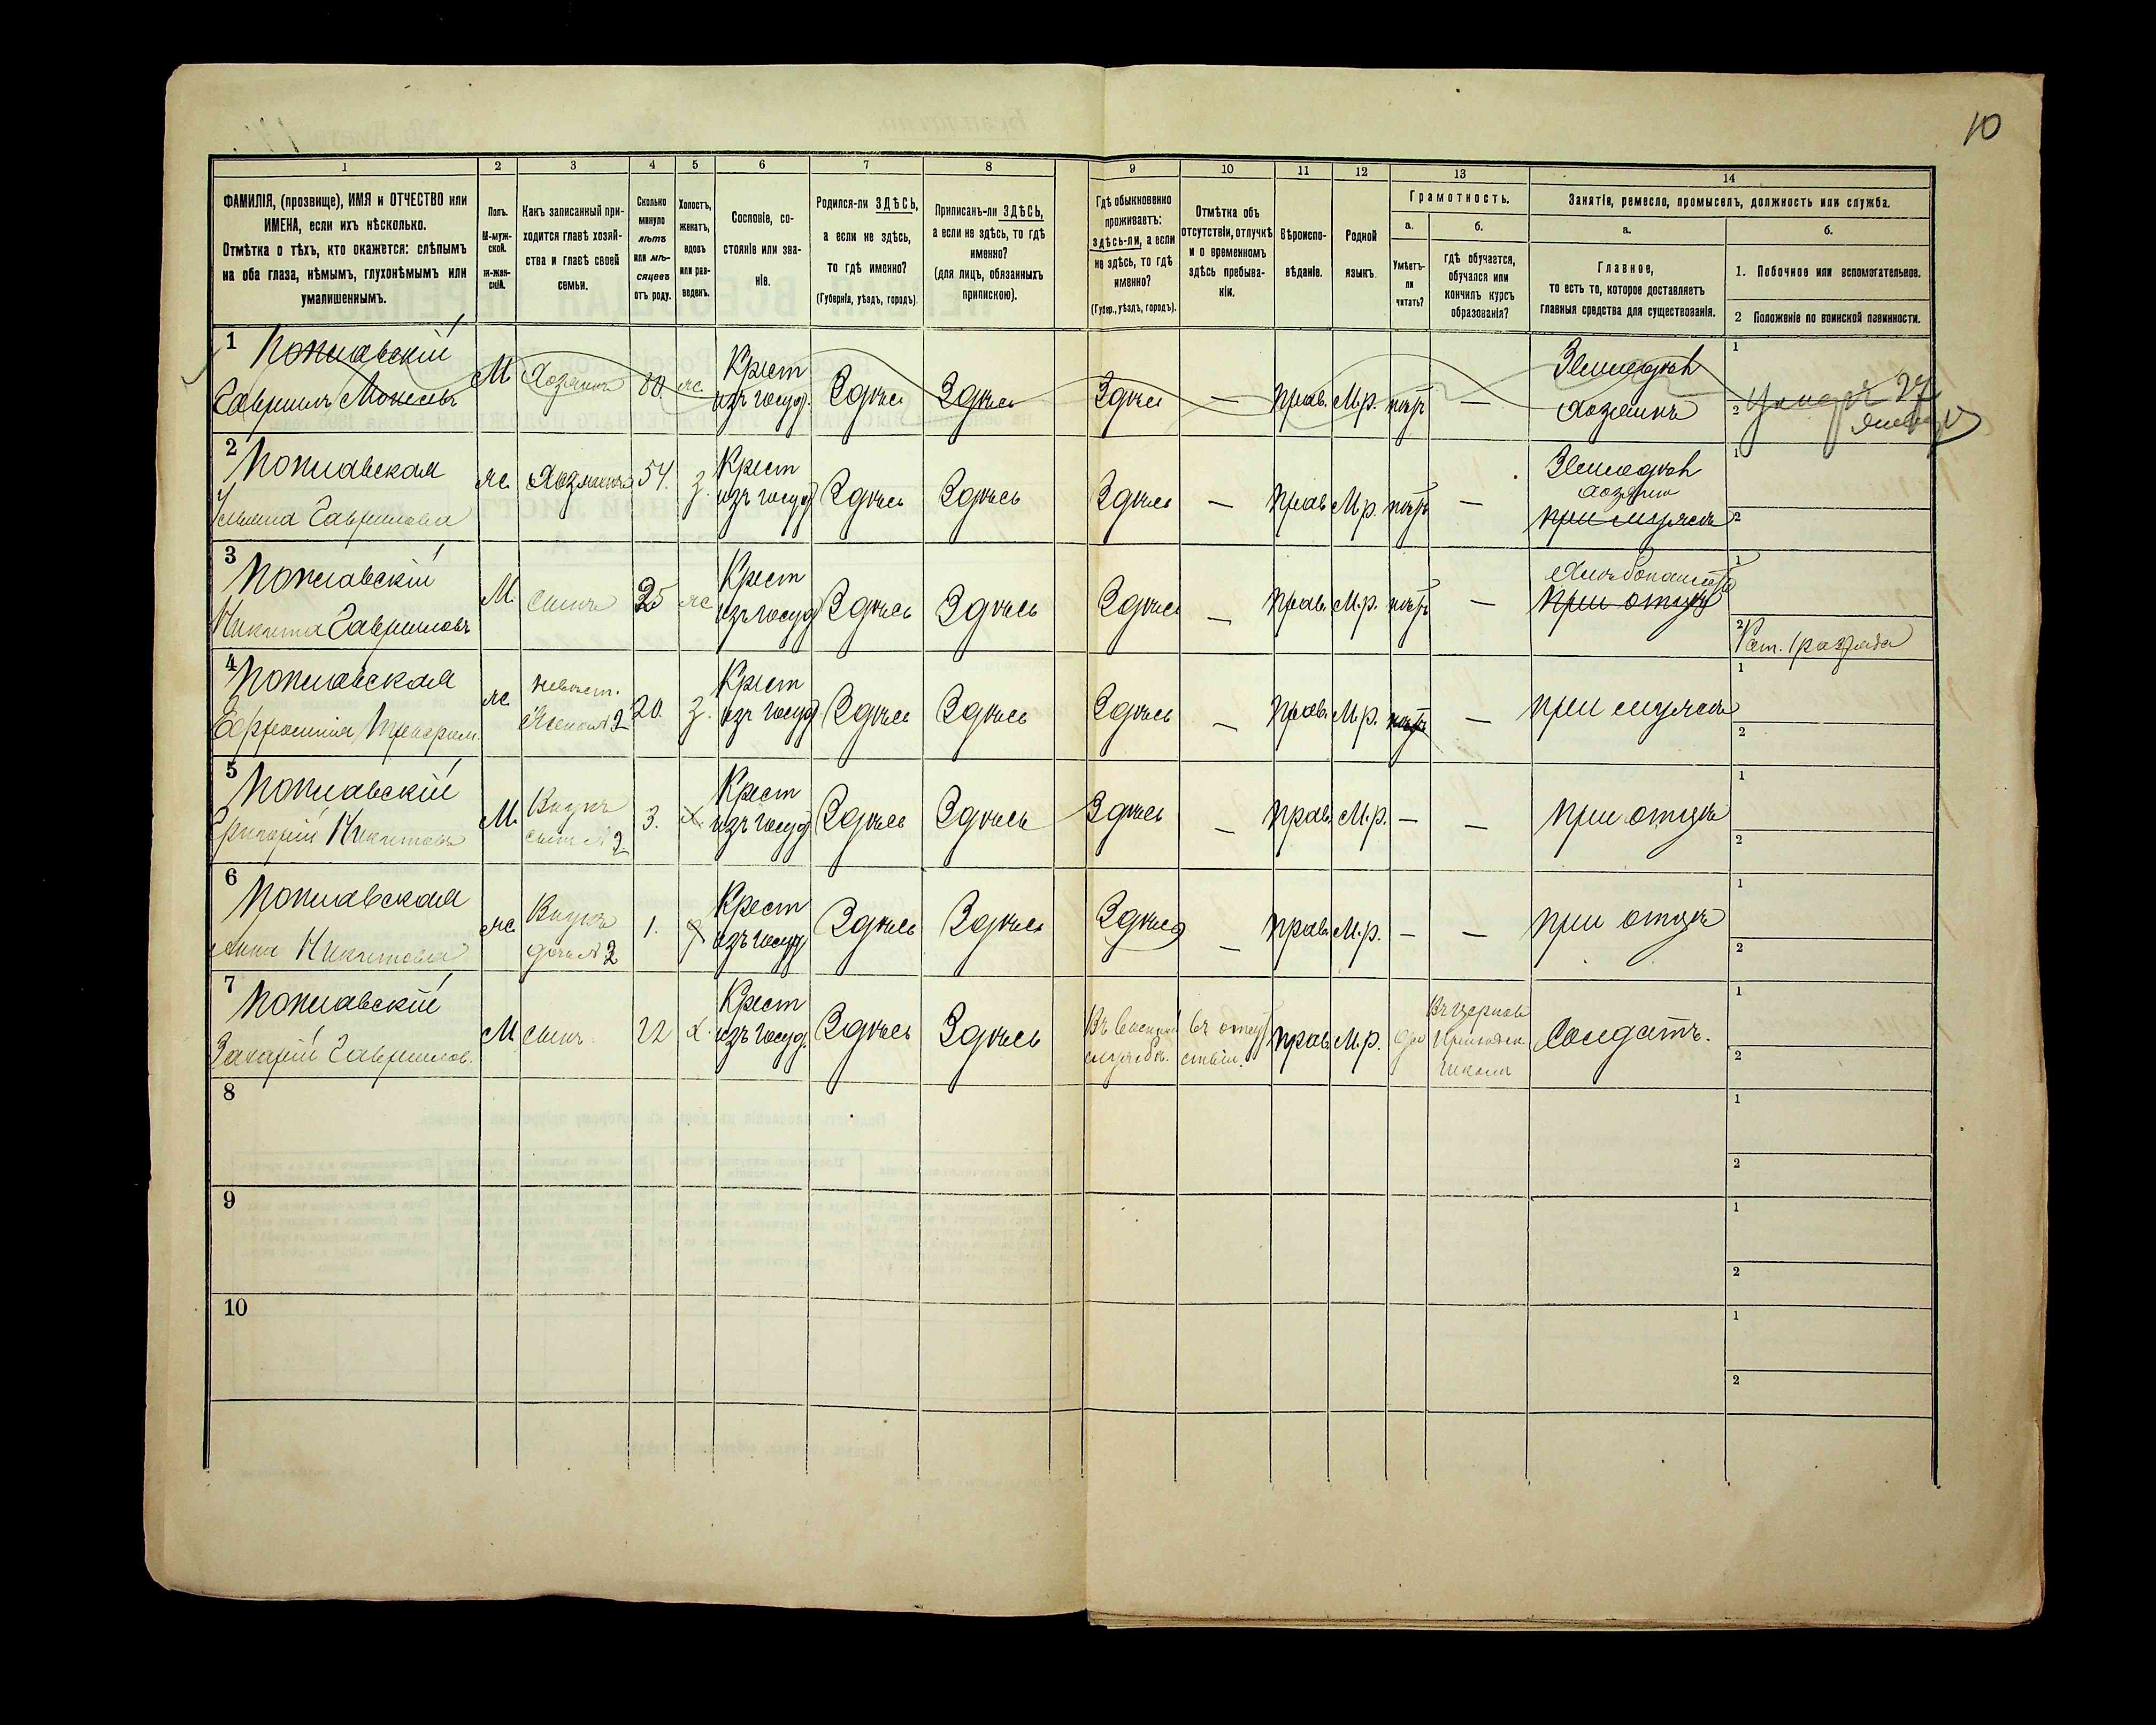 10
1
2
3
4
5
6
7
8
9
10
11
12
13
14
ФАМИЛІЯ, (прозвище), ИМЯ и ОТЧЕСТВО или
ИМЕНА, если ихъ нѣсколько.
Отмѣтка о тѣхъ, кто окажется: слѣпымъ
на оба глаза, нѣмымъ, глухонѣмымъ или
умалишеннымъ.
Полъ.
М-муж-
ской.
ж-жен-
скій.
Какъ записанный при-
ходится главѣ хозяй-
ства и главѣ своей
семьи.
Сколько
минуло
лѣтъ
или мѣ-
сяцевъ
отъ роду.
Холостъ,
женатъ,
вдовъ
или раз-
веденъ.
Сословіе, со-
стояніе или зва-
ніе.
Родился-ли ЗДѢСЬ,
а если не здѣсь,
то гдѣ именно?
(Губернія, уѣздъ, городъ).
Приписанъ-ли ЗДѢСЬ,
а если не здѣсь, то гдѣ
именно?
(для лицъ, обязанныхъ
припискою).
Гдѣ обыкновенно
проживаетъ:
здѣсь-ли, а если
не здѣсь, то гдѣ
именно?
(Губер., уѣздъ, городъ).
Отмѣтка объ
отсутствіи, отлучкѣ
и о временномъ
здѣсь пребыва-
ніи.
Вѣроиспо-
вѣданіе.
Родной
языкъ.
Грамотность.
а.
Умѣетъ-
ли
читать?
б.
гдѣ обучается,
обучался или
кончилъ курсъ
образованія?
Занятіе, ремесло, промыселъ, должность или служба.
а.
Главное,
то есть то, которое доставляетъ
главныя средства для существованія.
б.
1. Побочное или вспомогательное.
2 Положеніе по воинской повинности.
1
Поплавскій
Гавриилъ Моисеевъ
М
Хозяинъ
60.
ж.
Крест
изъ госуд.
Здѣсь
Здѣсь
Здѣсь
—
прав.
М.р.
нѣтъ
—
Земледѣл
хозяинъ
1
2
27
января
2
Поплавская
Ульяна Гаврилова
ж.
Хозяйка
54.
з.
Крест
изъ госуд
Здѣсь
Здѣсь
Здѣсь
—
прав.
М.р.
нѣтъ
—
Земледѣл
хозяйка
при мужѣ
1
2
3
Поплавскій
Никита Гавриловъ
М.
Сынъ
25
ж
Крест
изъ госуд
Здѣсь
Здѣсь
Здѣсь
—
прав.
М.р.
нѣтъ
—
Хлѣбопашество
при отцѣ
1
2
Рат. 1 разряда
4
Поплавская
Ефросинія
ж.
Невѣст.
жена № 2
20.
з.
Крест
изъ госуд
Здѣсь
Здѣсь
Здѣсь
—
прав.
М.р.
нѣтъ
—
при мужѣ
1
2
5
Поплавскій
Григорій Никитовъ
М.
Внукъ
сынъ № 2
3.
х.
Крест
изъ госуд
Здѣсь
Здѣсь
Здѣсь
—
прав.
М.р.
—
—
при отцѣ
1
2
6
Поплавская
Анна Никитова
ж.
Внука
дочь № 2
1.
Крест
изъ госуд
Здѣсь
Здѣсь
Здѣсь
—
прав.
М.р.
—
—
при отцѣ
1
2
7
Поплавскій
Захарій Гаврилов.
М
сынъ.
22
х.
Крест
изъ госуд.
Здѣсь
Здѣсь
Въ военной
службѣ.
въ отсут
ствіи.
прав.
М.р.
да
Въ церков
приходск
школѣ
Солдатъ.
1
2
8
1
2
9
1
2
10
1
2